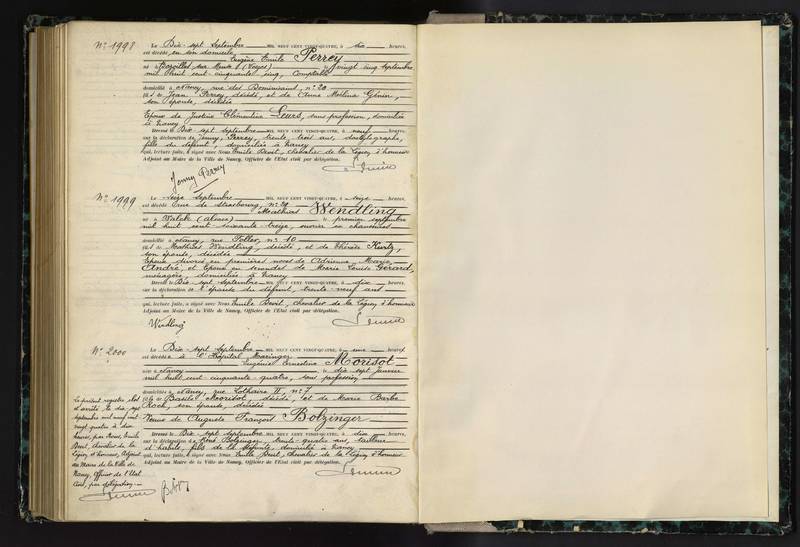 N° 1998
Le Dix-sept Septembre MIL NEUF CENT VINGT-QUATRE, à dix heures,
est décédé en son domicile
Eugène Emile Perrey
né à sur (Vosges) le vingt cinq septembre
mil huit cent cinquante cinq, Comptable
domicilié à Nancy, rue des Dominicains, n° 20
fils de Jean Perrey, décédé, et de Anne Génin,
son épouse, décédée
Epoux de Justine Clémentine Leurs, sans profession, domiciliée
à Nancy
Dressé le Dix sept septembre MIL NEUF CENT VINGT-QUATRE, à neuf heures,
sur la déclaration de Jenny Perrey, trente trois ans, dactylographe,
fille du défunt, domiciliée à Nancy
qui, lecture faite, a signé avec Nous Emile Chevalier de la Légion d'honneur
Adjoint au Maire de la Ville de Nancy, Officier de l'Etat civil par délégation.
Jenny Perrey
N° 1999
Le Seize Septembre MIL NEUF CENT VINGT-QUATRE, à seize heures,
est décédé rue de Strasbourg, n° 29
Mathias Wendling
né à Walck (Alsace) le premier septembre
mil huit cent soixante-treize, ouvrier en chaussures
domicilié à Nancy, rue Foller, n° 10
fils de Mathias Wendling, décédé, et de Thérèse Kurtz,
son épouse, décédée
Epoux divorcé en premières noces de Adrienne Marie
André, et Epoux en secondes de Marie Louise Gérard,
ménagère, domiciliée à Nancy
Dressé le Dix sept septembre MIL NEUF CENT VINGT-QUATRE, à dix heures,
sur la déclaration de l'épouse du défunt, trente-neuf ans
qui, lecture faite, a signé avec Nous Emile Chevalier de la Légion d'honneur
Adjoint au Maire de la Ville de Nancy, Officier de l'Etat civil par délégation.
Wendling
N° 2000
Le Dix-sept Septembre MIL NEUF CENT VINGT-QUATRE, à une heure
est décédée à l'Hôpital Maringer
Eugénie Ernestine Morisot
née à Nancy le dix sept janvier
mil huit cent cinquante-quatre, sans profession
domiciliée à Nancy, rue Lothaire II, n° 7
fille de Basile Morisot, décédé, et de Marie Barbe
Roch, son épouse, décédée
Veuve de Auguste François Bolzinger
Dressé le Dix sept septembre MIL NEUF CENT VINGT-QUATRE, à dix heures,
sur la déclaration de René Bolzinger, trente-quatre ans, tailleur
d'habits, fils de la défunte, domicilié à Nancy
qui, lecture faite, a signé avec Nous Emile Chevalier de la Légion d'honneur
Adjoint au Maire de la Ville de Nancy, Officier de l'Etat civil par délégation.
Le présent registre clos
et arrêté le dix sept
Septembre mil neuf cent
vingt quatre à dix
heures, par Nous, Emile
Chevalier de la
Légion d'honneur, Adjoint
au Maire de la Ville de
Nancy, Officier de l'Etat
Civil, par délégation